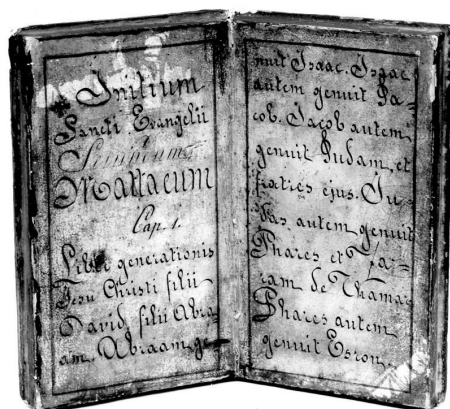 Initium
Sancti Evangelii
Mattaeum
Cap. 1.
Liber generationis
Jesu Christi filii
David, filii Abra
am. Abraam ge-
nuit Isaac. Isaac
autem genuit Ja-
cob. Jacob autem
genuit Judam, et
fratres ejus. Ju-
das autem genuit
Phares et Za-
ram de Thamar
Phares autem
genuit Esron.